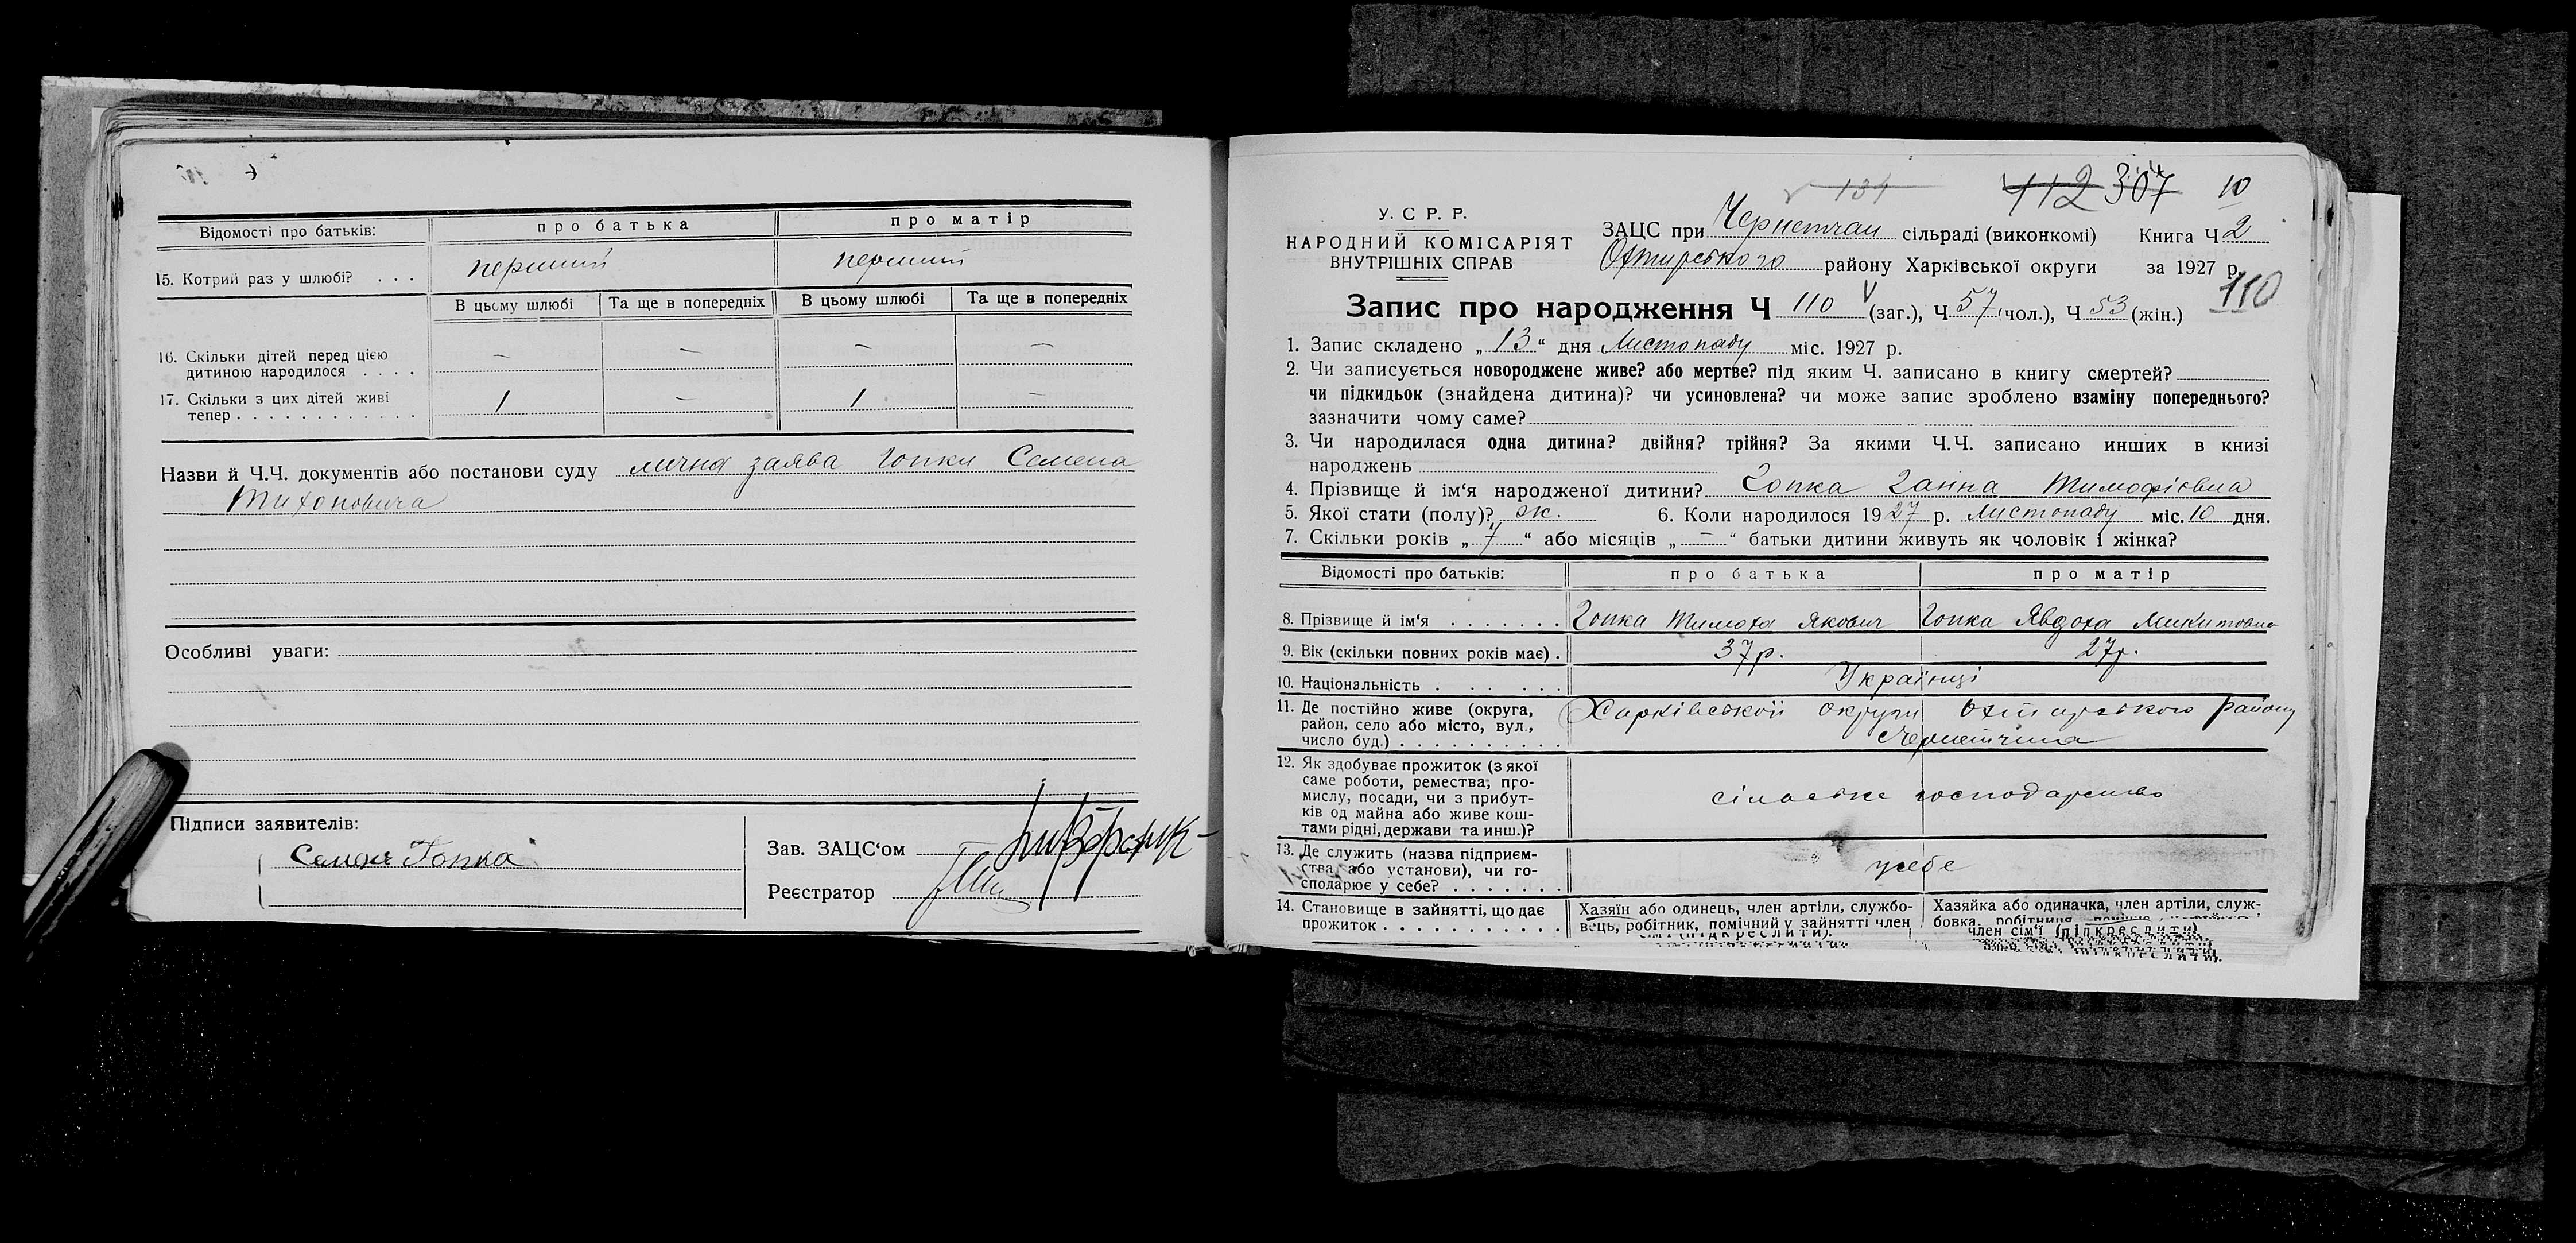 Відомості про батьків: про батька про матір
15. Котрий раз у шлюбі? . . . перший перший
В цьому шлюбі Та ще в попередніх В цьому шлюбі Та ще в попередніх
16. Скільки дітей перед цією
дитиною народилося . . . . — — — —
17. Скільки з цих дітей живі
тепер . . . . . . . . . . . . . 1 — 1 —
Назви й Ч.Ч. документів або постанови суду лична заява Гопки Семена
Тихоновича
Особливі уваги:
Підписи заявителів:
Семен Гопка
Зав. ЗАЦС‘ом
Реєстратор
134
112 307 10
У. С Р. Р.
НАРОДНИЙ КОМІСАРІЯТ
ВНУТРІШНІХ СПРАВ
ЗАЦС при Чернетчан сільраді (виконкомі) Книга Ч 2
Охтирського району Харківської округи за 1927 р.
110
Запис про народження Ч 110 (заг.), Ч 57 (чол.), Ч 53 (жін.)
1. Запис складено „ 13 “ дня Листопаду міс. 1927 р.
2. Чи записується новороджене живе? або мертве? під яким Ч. записано в книгу смертей?
чи підкидьок (знайдена дитина)? чи усиновлена? чи може запис зроблено взаміну попереднього?
зазначити чому саме?
3. Чи народилася одна дитина? двійня? трійня? За якими Ч.Ч. записано инших в книзі
народжень
4. Прізвище й ім‘я народженої дитини? Гопка Ганна Тимофіївна
5. Якої стати (полу)? ж. 6. Коли народилось 1927 р. Листопаду міс. 10 дня.
7. Скільки років „ 7 “ або місяців „ — “ батьки дитини живуть як чоловік і жінка?
Відомості про батьків: про батька про матір
8. Прізвище й ім‘я . . . . . . . Гопка Тимоха Якович Гопка Явдоха Микитовна
9. Вік (скільки повних років має) . 37р. 27р.
10. Національність . . . . . . Українці
11. Де постійно живе (округа, Харківськой округи Охтирського району
район, село або місто, вул.,
число буд.) . . . . . . . . . . Чернетчина
12. Як здобуває прожиток (з якої
саме роботи, ремества, про-
мислу, посади, чи з прибут- сільське господарство
ків од майна або живе кош-
тами рідні, держави та инш.)?
13. Де служить (назва підприєм-
ства або установи), чи го- у себе
сподарює у себе? . . . . . . .
14. Становище в зайнятті, що дає Хазяїн або одинець, член артіли, службо- Хазяйка або одиначка, член артіли, служ-
прожиток . . . . . . . . . . . вець, робітник, помічний у зайнятті член бовка, робітниця
член сім‘ї (підкреслити)